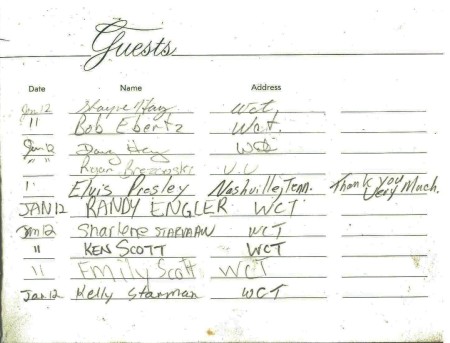 Guests
Date Name Address
Jan 12 Shayne Hay Wct.
11 Bob Ebertz Wct.
Jan 12 Doug Hay WCt
" " Ryan
1' Elvis Presley Nashville, Tenn. Thank You Very Much.
JAN 12 RANDY ENGLER WCT
Jan 12 Sharlene STARMAN WCT
" KEN SCOTT WCT
11 Emily Scott WCT
Jan. 12 Kelly Starman WCT